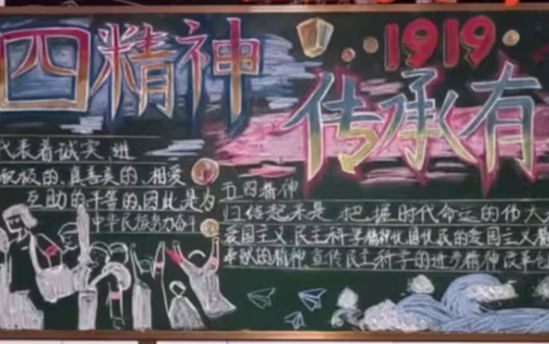 四精神
1919
传承有
代表着诚实、进
积极的、真善美的、相爱
互助的平等的、因此,是为
中华民族努力奋斗
五四精神
归结起来是 把握时代命运的伟大
爱国主义 民主科学精神忧国忧民的爱国主义
奉献的精神 宣传民主科学的进步精神 改革